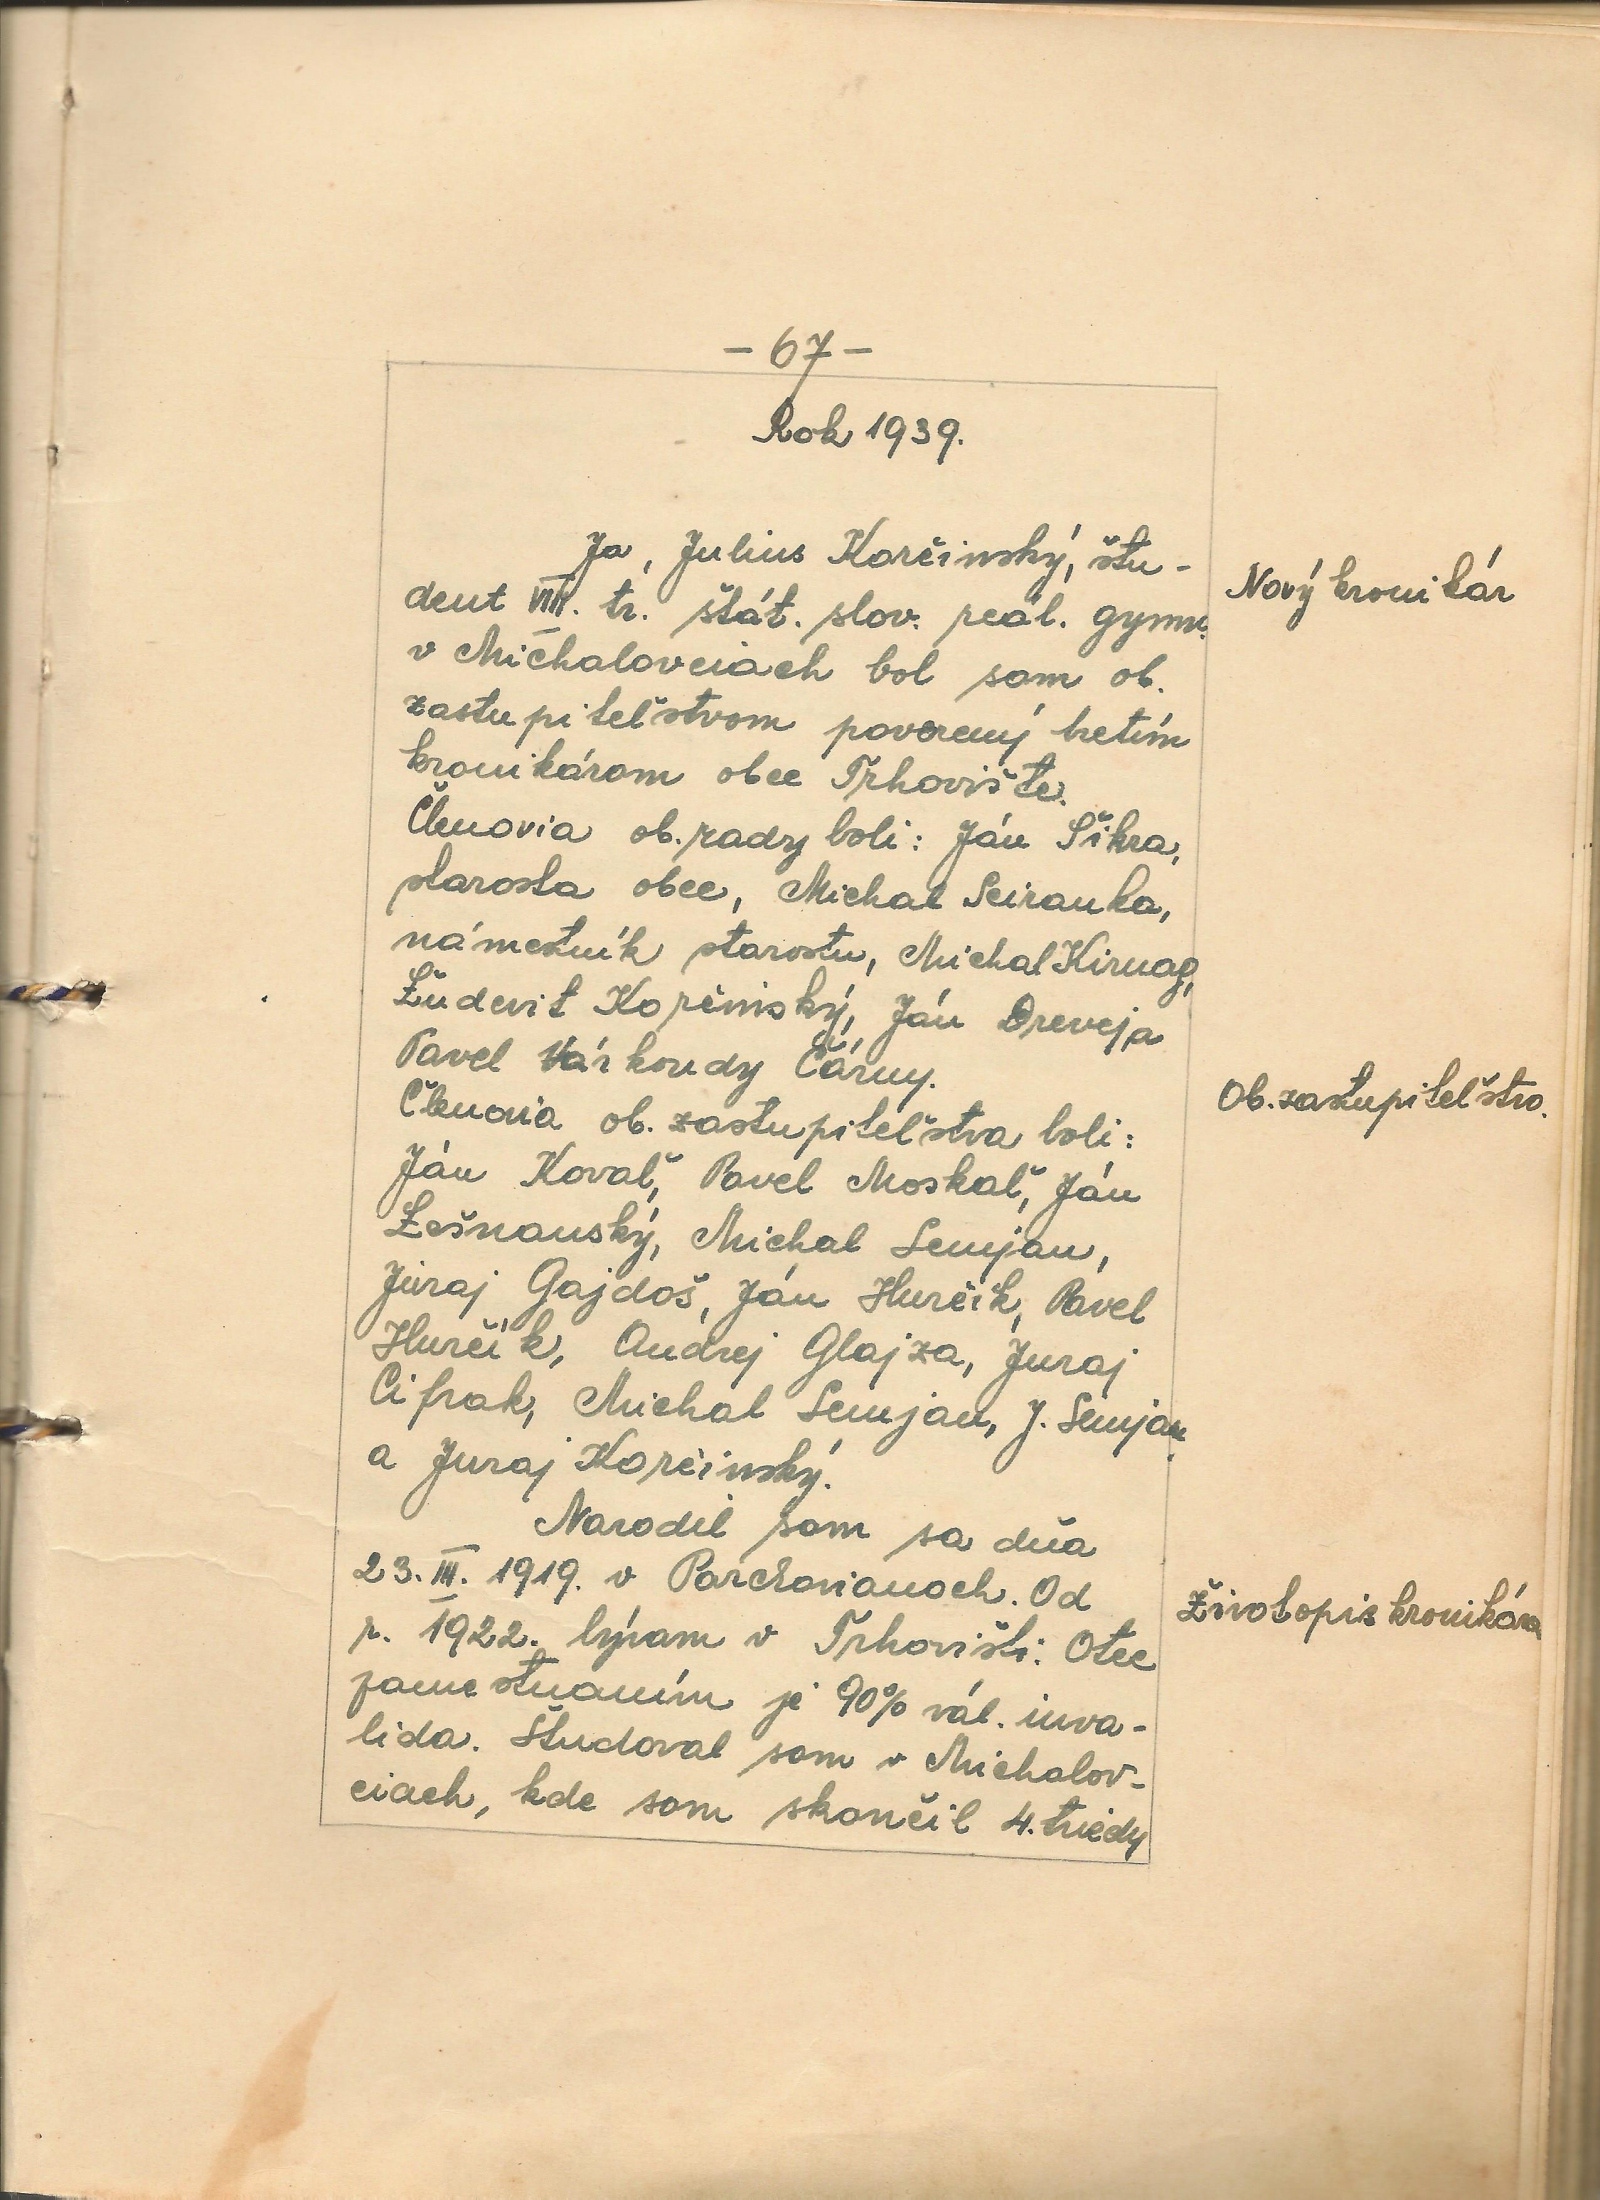 - 67 -
Rok 1939.
Ja, Julius Korčinský, štu-
dent VIII. tr. štát. slov. reál. gymn.
Nový kronikár
v Michalovciach bol som ob.
zastupiteľstvom poverený tretím
kronikárom obce Trhovište.
Členovia ob. rady boli: Ján Šikra,
starosta obce, Michal Sciranka,
námestník starostu, Michal Kirnag,
Ľudevit Korčinský, Ján Dreveja
Pavel Várkondy Čárny.
Ob. zastupiteľstvo.
Členovia ob. zastupiteľstva boli:
Ján Kovaľ, Pavel Moskaľ, Ján
Lešnanský, Michal Semjan,
Juraj Gajdoš, Ján Hurčík, Pavel
Hurčík, Andrej Glajza, Juraj
Cifrak, Michal Semjan, J. Semjan
a Juraj Korčinský.
Narodil som sa dňa
23. III. 1919. v Parchovianoch. Od
Životopis kronikára
r. 1922. bývam v Trhovišti. Otec
zamestnaním je 90% vál. inva-
lida. Študoval som v Michalov-
ciach, kde som skončil 4. triedy